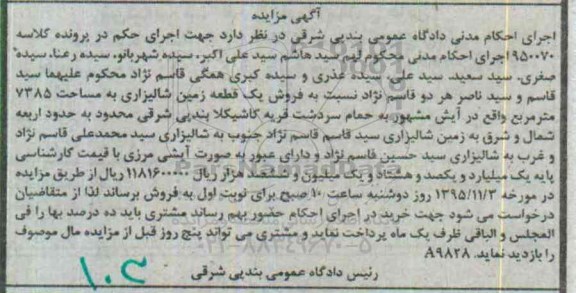 آگهی مزایده
اجرای احکام مدنی دادگاه عمومی بندپی شرقی در نظر دارد جهت اجرای حکم در پرونده کلاسه
۹۵۰۰۷۰ اجرای احکام مدنی محکوم لهم سید هاشم سید علی اکبر، سیده شهربانو، سیده رعنا، سیده
صغری، سید سعید، سید علی، سیده عذری و سیده کبری همگی قاسم نژاد محکوم علیهما سید
قاسم و سید ناصر هر دو قاسم نژاد نسبت به فروش یک قطعه زمین شالیزاری به مساحت ۷۳۸۵
مترمربع واقع در آیش مشهور به حمام سردشت قریه گاشیکلا بندپی شرقی محدود به حدود اربعه
شمال و شرق به زمین شالیزاری سید قاسم قاسم نژاد جنوب به شالیزاری سید محمدعلی قاسم نژاد
و غرب به شالیزاری سید حسین قاسم نژاد و دارای عبور به صورت آیشی مرزی با قیمت کارشناسی
پایه یک میلیارد و یکصد و هشتاد و یک میلیون و ششصد هزار ریال ۱۱۸۱۶۰۰۰۰۰ ریال از طریق مزایده
در مورخه ۱۳۹۵/۱۱/۳ روز دوشنبه ساعت ۱۰ صبح برای نوبت اول به فروش برساند لذا از متقاضیان
درخواست می شود جهت خرید در اجرای احکام حضور بهم رساند مشتری باید ده درصد بها را فی
المجلس و الباقی ظرف یک ماه پرداخت نماید و مشتری می تواند پنج روز قبل از مزایده مال موصوف
را بازدید نماید. A۹۸۲۸
رئیس دادگاه عمومی بندپی شرقی
۰۲۱-۸۸۳۴۹۶۷۰-۵